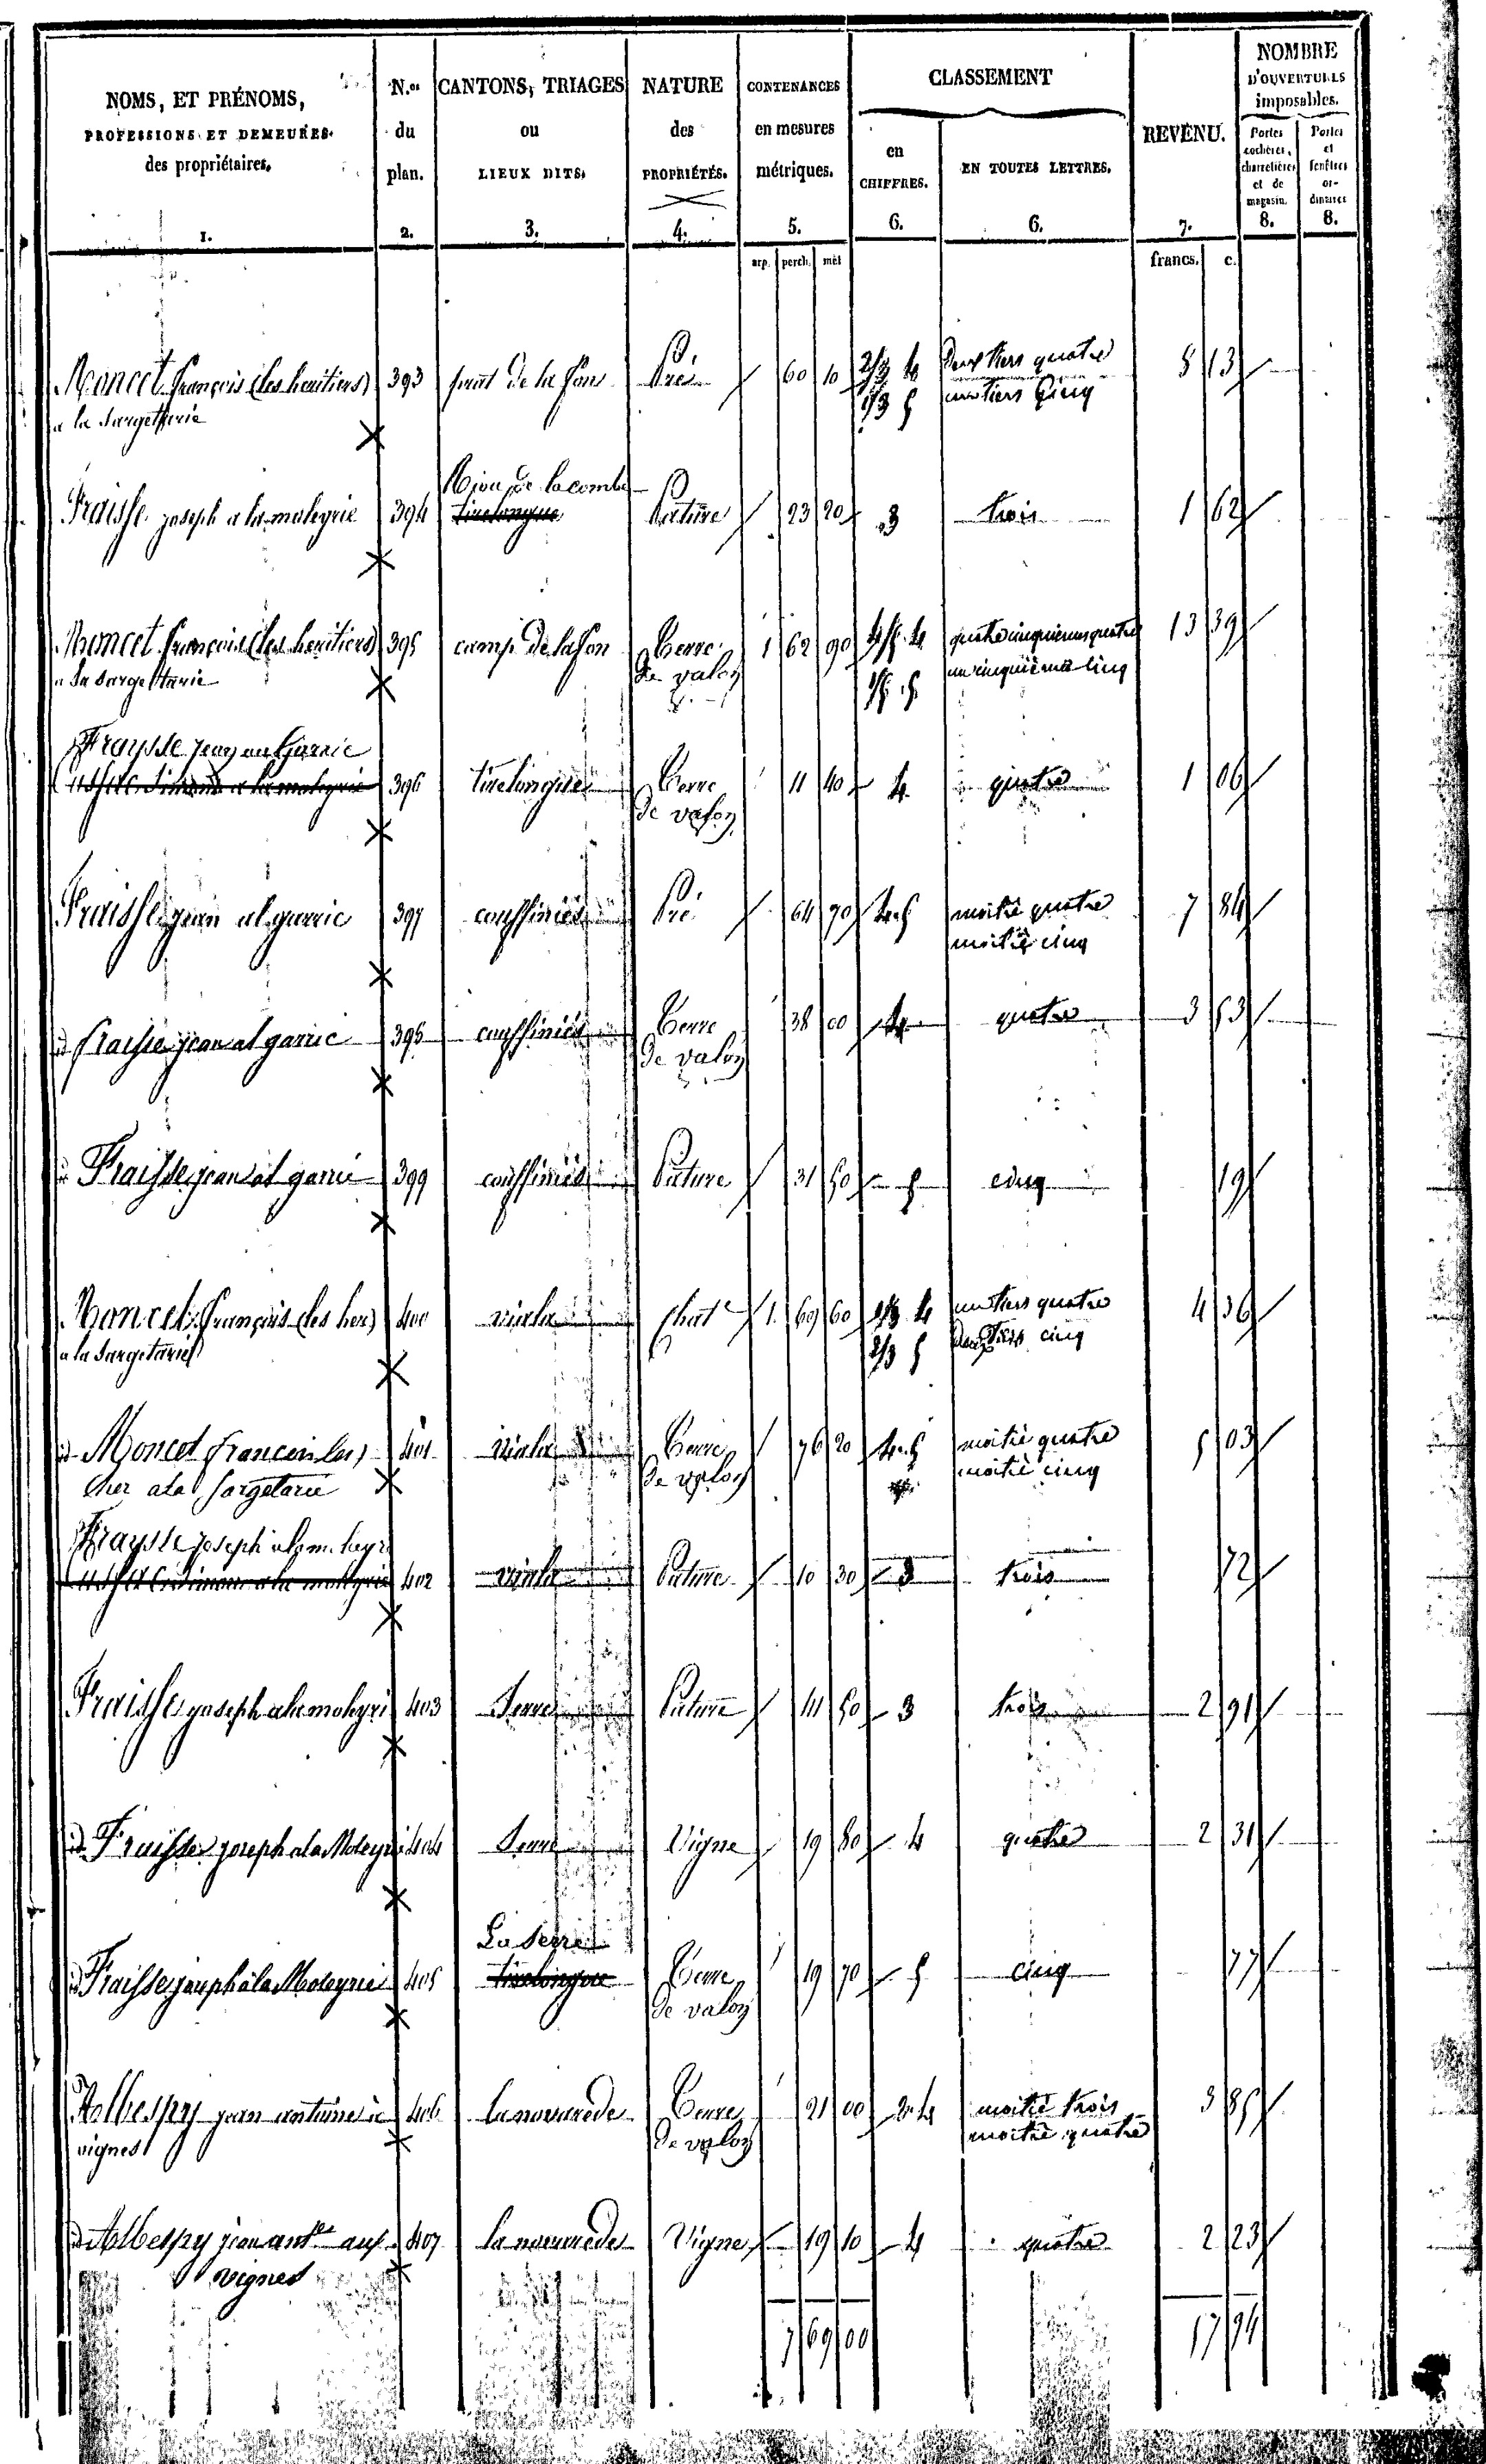 NOMS, ET PRÉNOMS, PROFESSIONS ET DEMEURES des propriétaires. 1.
N.os du plan. 2.
CANTONS, TRIAGES ou LIEUX DITS. 3.
NATURE des PROPRIÉTÉS. 4.
CONTENANCES en mesures métriques. 5.
CLASSEMENT
en CHIFFRES. 6.
EN TOUTES LETTRES. 6.
REVENU. 7.
NOMBRE D'OUVERTURES imposables.
Portes cochères, charretières et de magasin. 8.
Portes et fenêtres ordinaires 8.
arp. perch. mèt francs. c.
Moncet françois (les heritiers) 393 de la fon Pré 60 10 2/3 4 Deux tiers quatre 8 13
a la Sargettarie 1/3 5 un tiers Cinq
Riou de la combe
Fraisse joseph a la moleyrie 394 tirelongue Pature 23 20 3 trois 1 62
Moncet françois (les heritiers) 395 camp de la fon Terre 1 62 90 4/5 4 quatre cinquiemes quatre 13 39
a la Sargettarie de valoy 1/5 5 un cinquième cinq
Fraysse jean au Garric
396 tirelongue Terre 11 40 4 quatre 1 06
de valoy
Fraisse jean al garric 397 couffiniés Pré 64 70 4.5 moitié quatre 7 84
moitié cinq
id fraisse jean al garric 398 couffiniés Terre 38 00 4 quatre 3 53
de valoy
id Fraisse jean al garric 399 couffiniés Pature 31 50 5 cinq 19
Moncet françois (les her) 400 viala chat 1 69 60 1/3 4 un tiers quatre 4 36
a la Sargetarie 2/3 5 Deux tiers cinq
id Moncet francois les 401 viala Terre 76 20 4.5 moitié quatre 5 03
her a la Sargetarie de valoy moitié cinq
Fraysse joseph
402 viala Pature 10 30 3 trois 72
Fraisse joseph a la moleyri 403 Serre Pature 41 50 3 trois 2 91
id Fraisse joseph a la Moleyri 404 Serre Vigne 19 80 4 quatre 2 31
La Serre
id Fraisse joseph à la Moleyrie 405 tirelongue Terre 19 70 5 cinq 77
de valoy
Albespy jean antoine 406 la nouarede Terre 21 00 3.4 moitié trois 3 85
vignes de valoy moitié quatre
id Albespy jean ant.ne aux 407 la nouarede Vigne 19 10 4 quatre 2 23
vignes
7 69 00 57 94